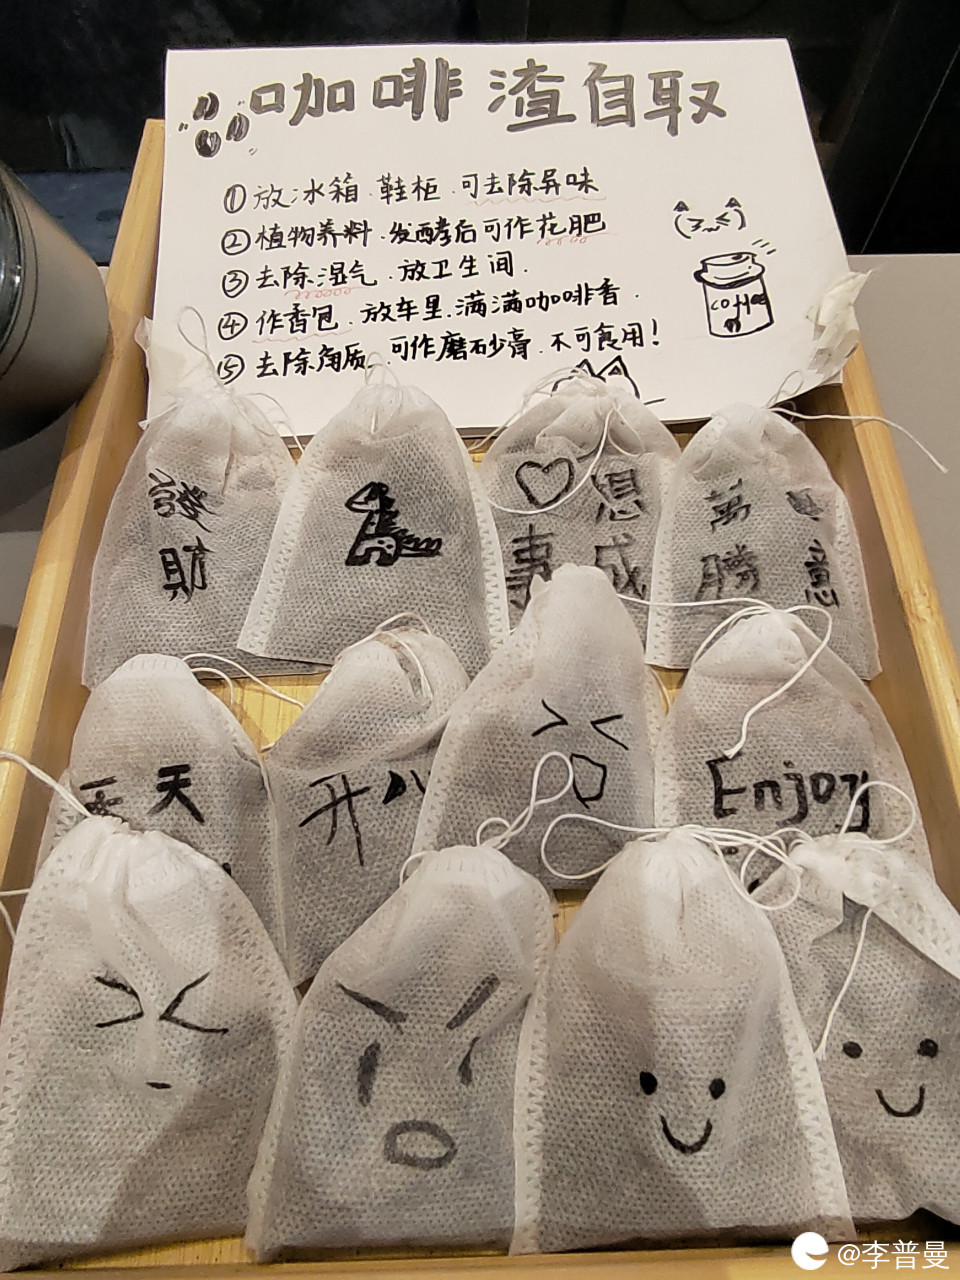 咖啡渣自取
①放冰箱.鞋柜.可去除异味
②植物养料.发酵后可作花肥
③去除湿气.放卫生间.
④作香包.放车里.满满咖啡香.
⑤去除角质.可作磨砂膏.不可食用!
coffee
發財
心想事成
萬勝
意
天天
开心
Enjoy
@李普曼